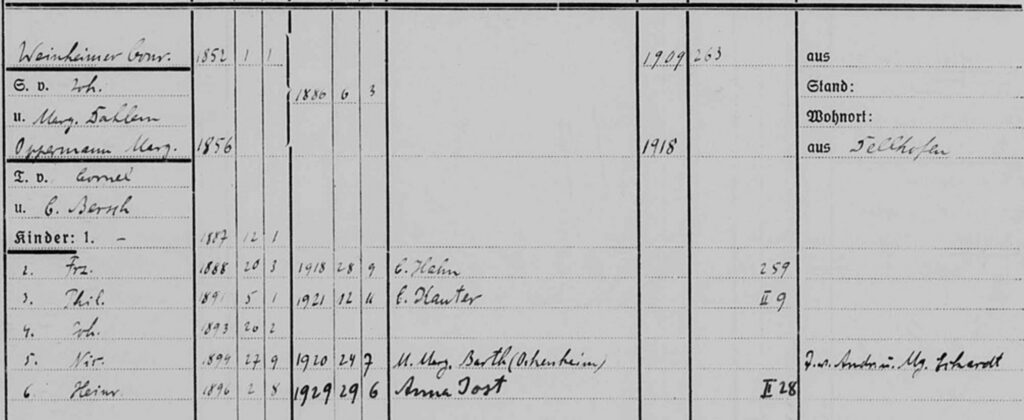 Weinheimer Conr. 1852 1 1 1909 263 aus
S. v. Joh. 1886 6 3 Stand:
u. Marg. Dahlem Wohnort:
Oppermann Marg. 1856 1918 aus
T. v. Cornel
u. C. Bersch
Kinder: 1. – 1887 12 1
2. Frz. 1888 20 3 1918 28 9 C. Hahn 259
3. Phil. 1891 5 1 1921 12 11 E. Kauter II 9
4. Joh. 1893 26 2
5. 1894 27 9 1920 24 7 M. Marg. Barth (Ockenheim) T. v. Andr. u. Mg. Erhardt
6 Heinr. 1896 2 8 1929 29 6 Anna Jost II 28